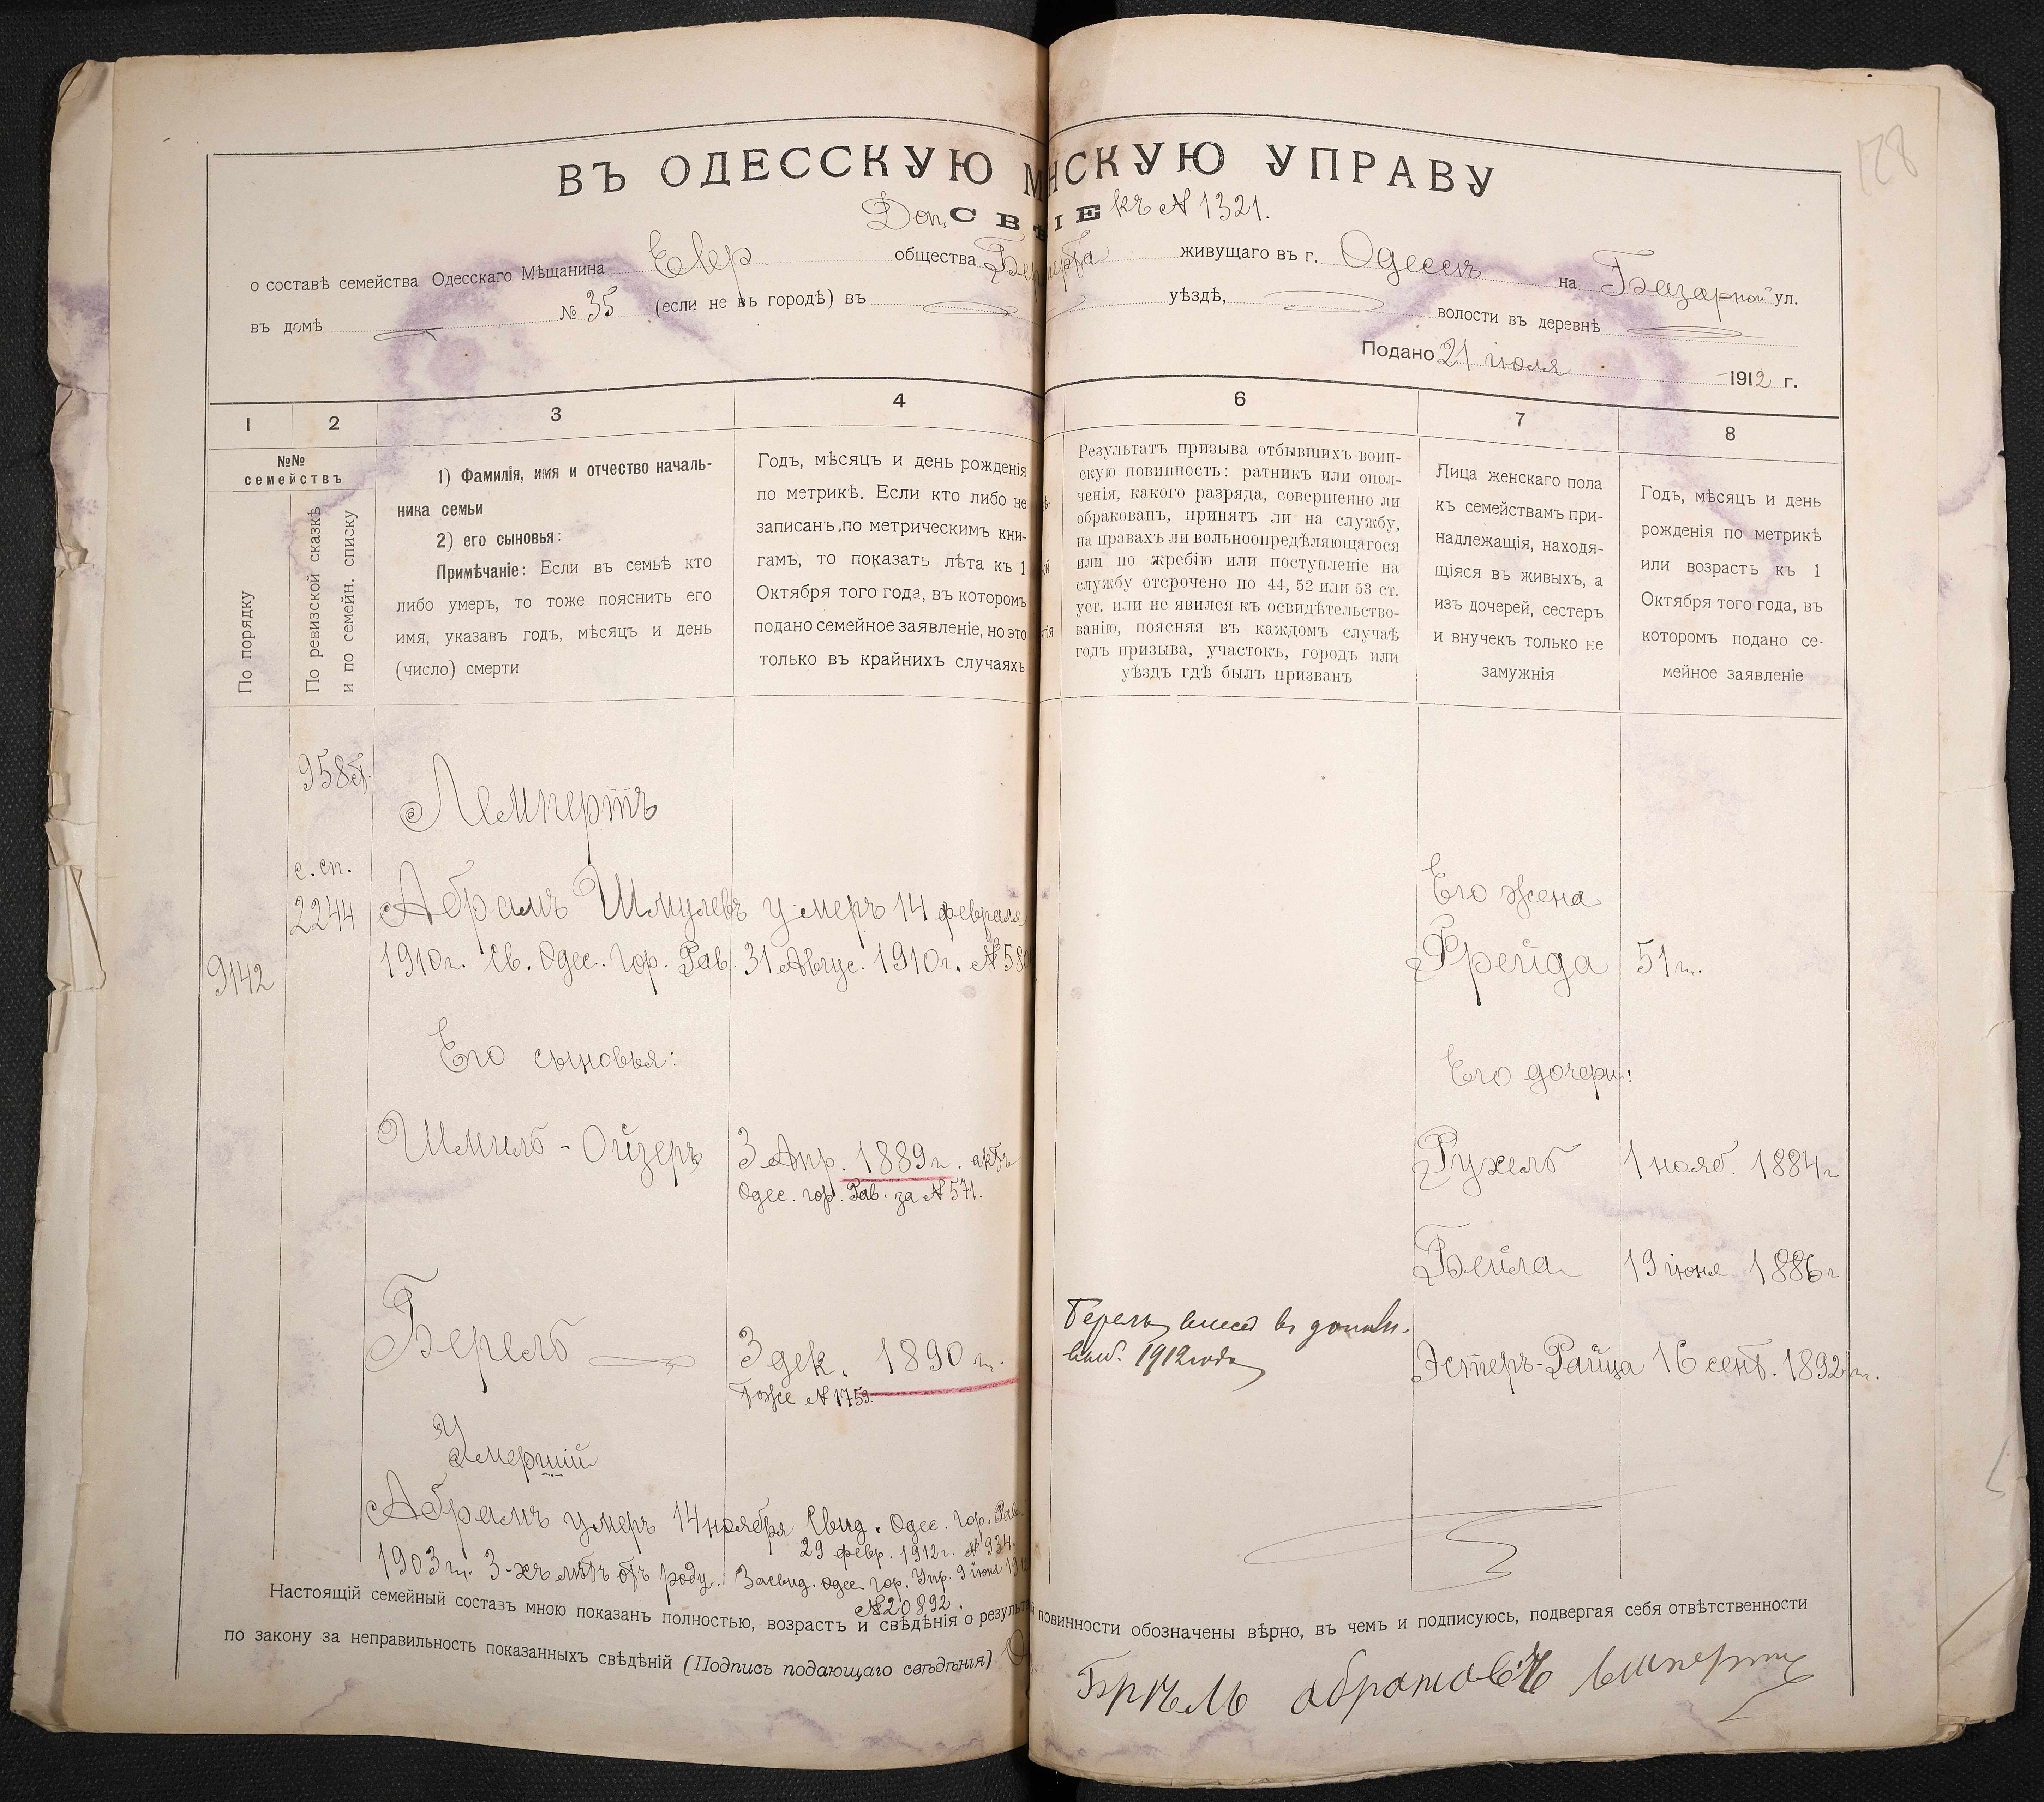 178
ВЪ ОДЕССКУЮ М НСКУЮ УПРАВУ
Доп. СВѢ ІЕ къ № 1321.
о составѣ семейства Одесскаго Мѣщанина Евр общества живущаго въ г. Одессѣ на Базарной ул.
въ домѣ № 35 (если не въ городѣ) въ уѣздѣ, волости въ деревнѣ
Подано 21 іюля 1912 г.
1 2 3 4 6 7 8
№№ семействъ
По порядку
По ревизской сказкѣ
и по семейн. списку
1) Фамилія, имя и отчество началь-
ника семьи
2) его сыновья:
Примѣчаніе: Если въ семьѣ кто
либо умеръ, то тоже пояснить его
имя, указавъ годъ, мѣсяцъ и день
(число) смерти
Годъ, мѣсяцъ и день рожденія
по метрикѣ. Если кто либо не
записанъ по метрическимъ кни-
гамъ, то показать лѣта къ 1
Октября того года, въ которомъ
подано семейное заявленіе, но это
только въ крайнихъ случаяхъ
Результатъ призыва отбывшихъ воин-
скую повинность: ратникъ или опол-
ченія, какого разряда, совершенно ли
обракованъ, принятъ ли на службу,
на правахъ ли вольноопредѣляющагося
или по жребію или поступленіе на
службу отсрочено по 44, 52 или 53 ст.
уст. или не явился къ освидѣтельство-
ванію, поясняя въ каждомъ случаѣ
годъ призыва, участокъ, городъ или
уѣздъ гдѣ былъ призванъ
Лица женскаго пола
къ семействамъ при-
надлежащія, находя-
щіяся въ живыхъ, а
изъ дочерей, сестеръ
и внучекъ только не
замужнія
Годъ, мѣсяцъ и день
рожденія по метрикѣ
или возрасть къ 1
Октября того года, въ
которомъ подано се-
мейное заявленіе
958
Лемпертъ
с. сп.
2244 Абрамъ Шмулевъ умеръ 14 февраля
9142 1910 г. Св. Одес. гор. Рав. 31 Авгус. 1910 г. № 58
Его жена
Фрейда 51 г.
Его сыновья:
Его дочери:
Шмиль-Ойзеръ 3 Апр. 1889 г. актъ
Одес. гор. Рав. за № 571.
Рухель 1 нояб. 1884 г
Бейла 19 іюня 1886 г
Берель 3 дек. 1890 г.
тоже № 1759.
Берель внесен в
1912 года
Эстеръ-Райца 16 сент. 1892 г.
Умершій
Абрамъ умеръ 14 ноября Свид. Одес. гор. Рав.
29 февр. 1912 г. № 934.
1903 г. 3-хъ лѣтъ отъ роду. Засвид. Одес. гор. Упр. 9 іюня 191
№ 20892.
Настоящій семейный составъ мною показанъ полностью, возрастъ и свѣдѣнія о результ повинности обозначены вѣрно, въ чемъ и подписуюсь, подвергая себя отвѣтственности
по закону за неправильность показанныхъ свѣдѣній (Подпись подающаго свѣдѣнія)